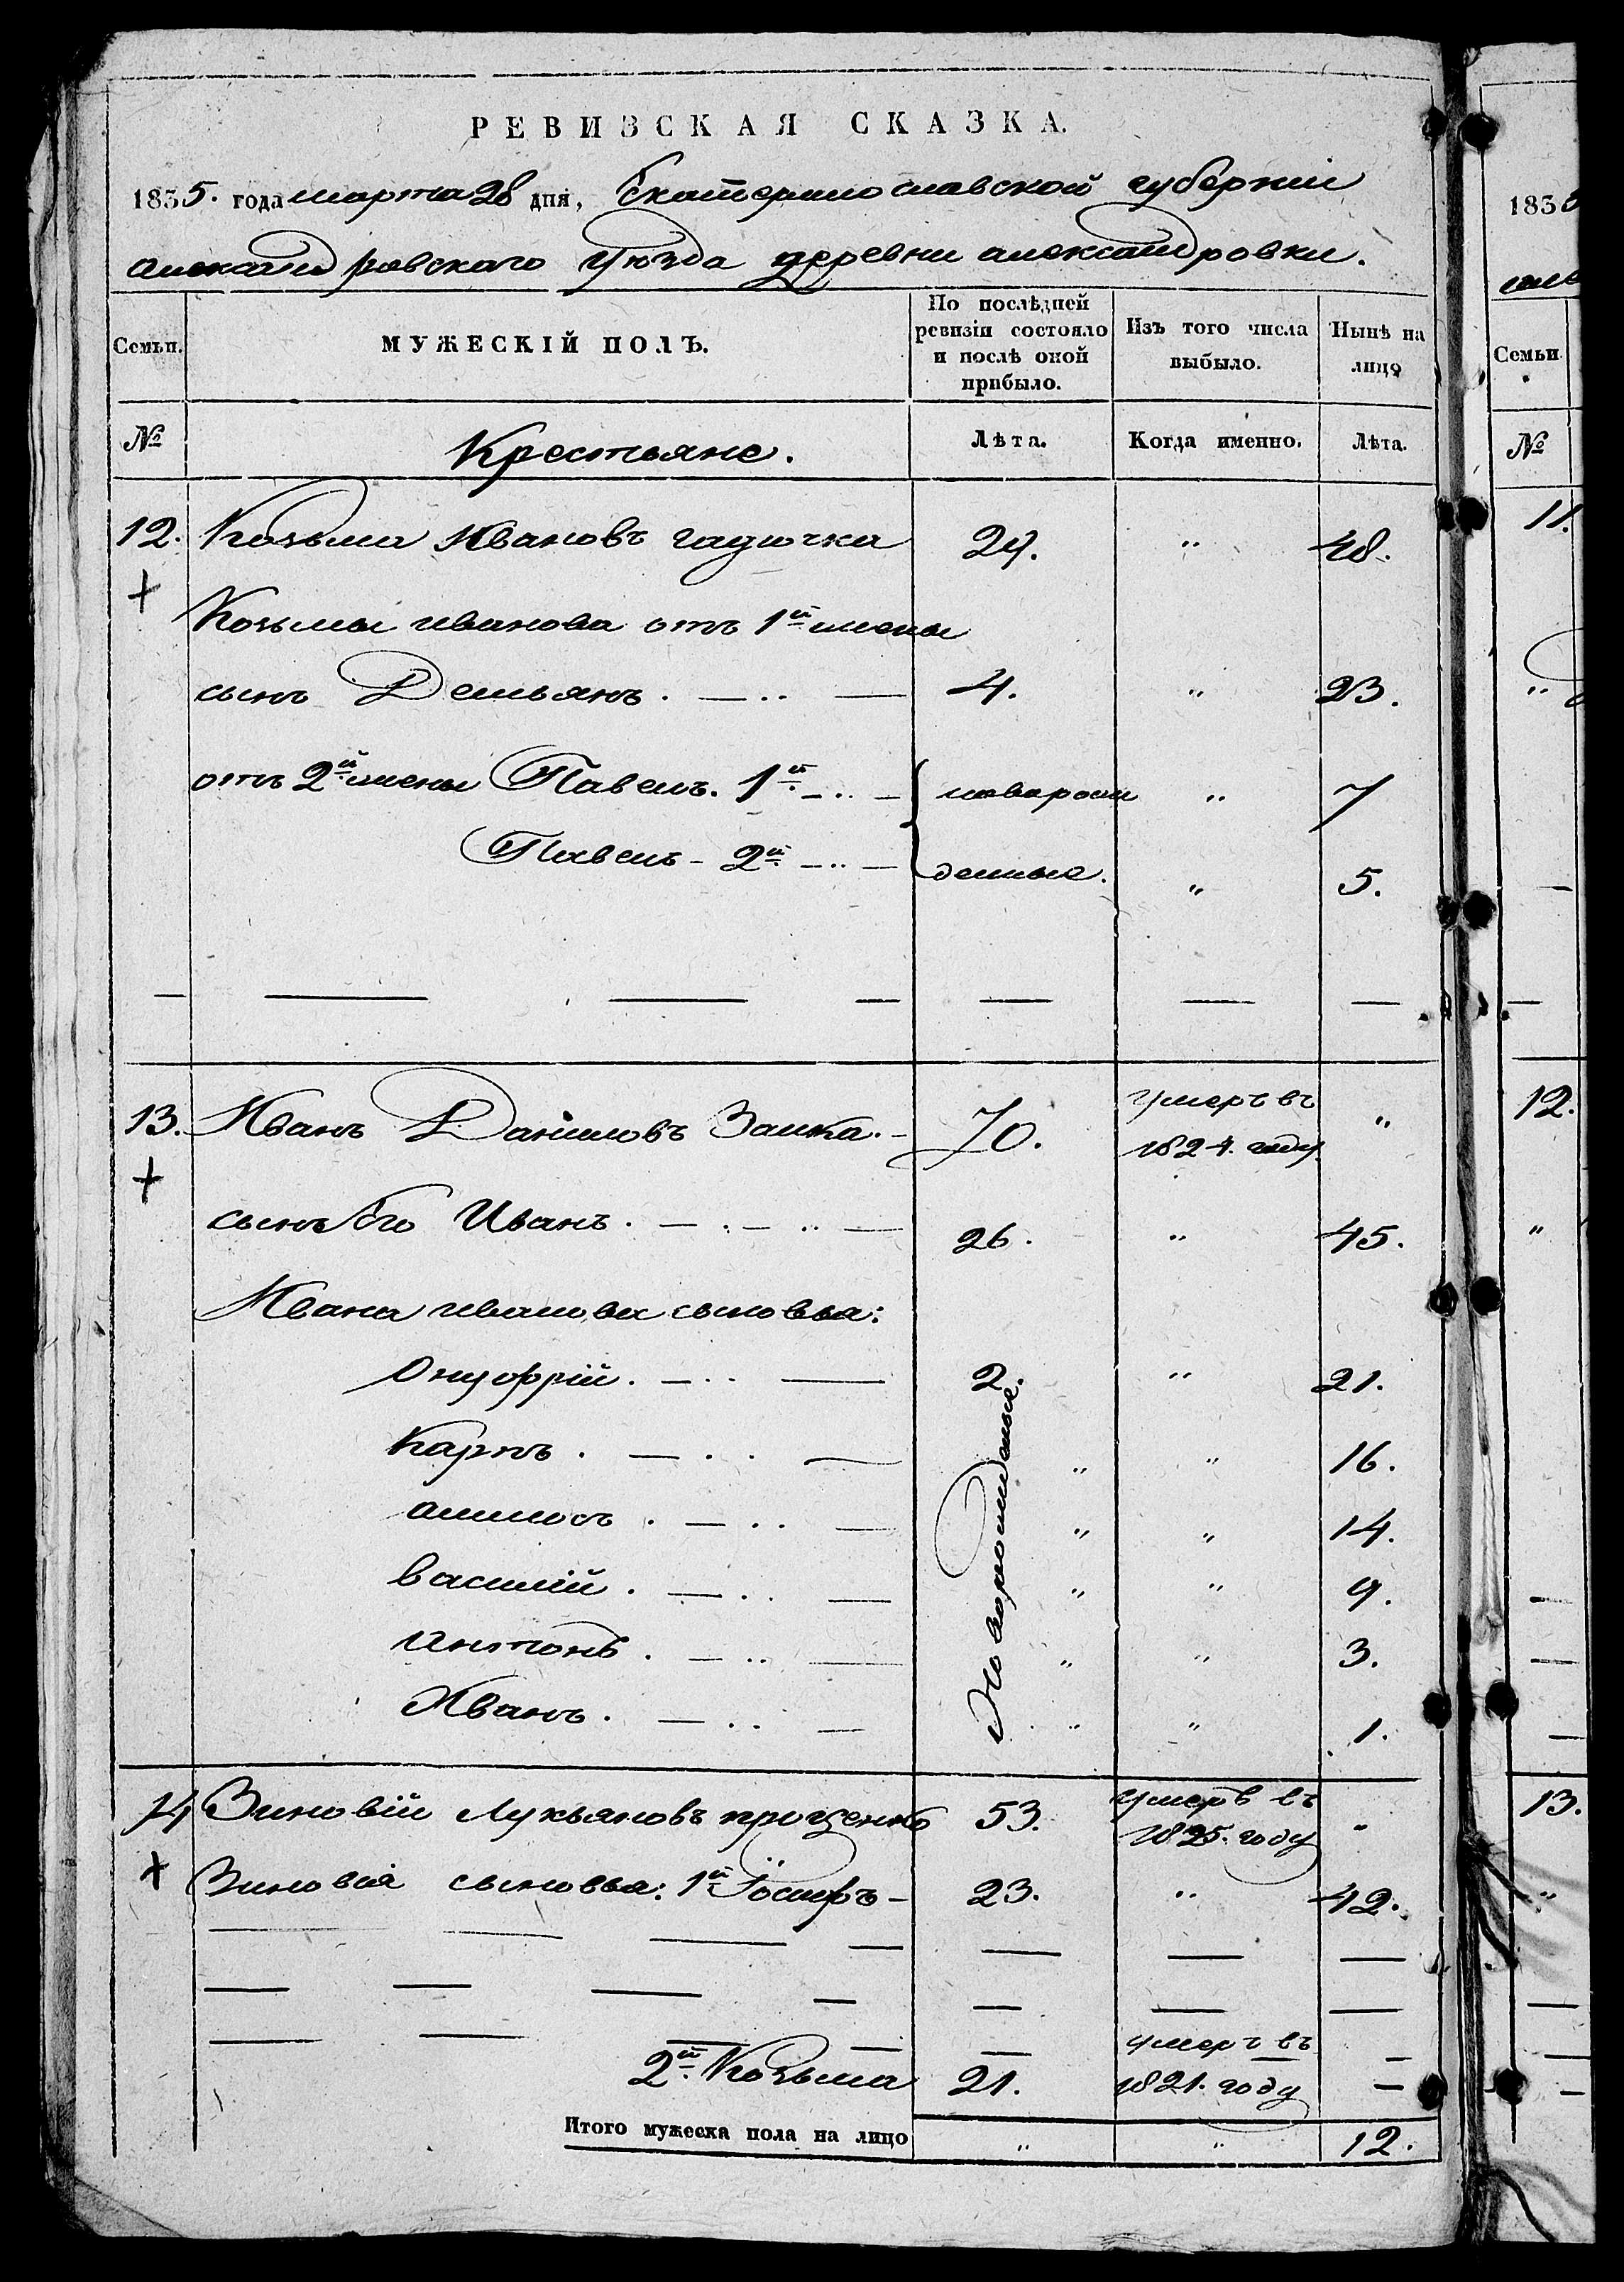 РЕВИЗСКАЯ СКАЗКА.
1835. года марта 28 дня, Екатеринославской губерніи
александровскаго уѣзда деревни александровки.
Семьи. МУЖЕСКІЙ ПОЛЪ. По послѣдней ревизіи состояло и послѣ оной прибыло. Изъ того числа выбыло. Нынѣ на лицо
№ Крестьяне. Лѣта. Когда именно. Лѣта.
12. Козьма Ивановъ гадючка 29. " 48.
+
Козьмы иванова отъ 1й жены
сынъ Демьянъ. 4. " 23.
отъ 2й жены Павелъ. 1й новорож " 7
Павелъ - 2й денные. " 5.
13. Иванъ Даниловъ Заика. 70. умеръ въ 1824. году. "
+
сынъ Его Иванъ. 26. " 45.
Ивана иванова сыновья:
Онуфрій. 2. " 21.
Новорожденные.
Карпъ. " " 16.
амносъ. " " 14.
василій. " " 9.
антонъ. " " 3.
Иванъ. " " 1.
14 Зиновій Лукьяновъ проценко 53. умеръ въ 1825. году "
+ Зиновія сыновья: 1й Іосифъ - 23. " 42.
2й Козьма 21. умеръ въ 1821. году
Итого мужеска пола на лицо " " 12.
183
Семьи
№
11.
"
12.
"
13.
"